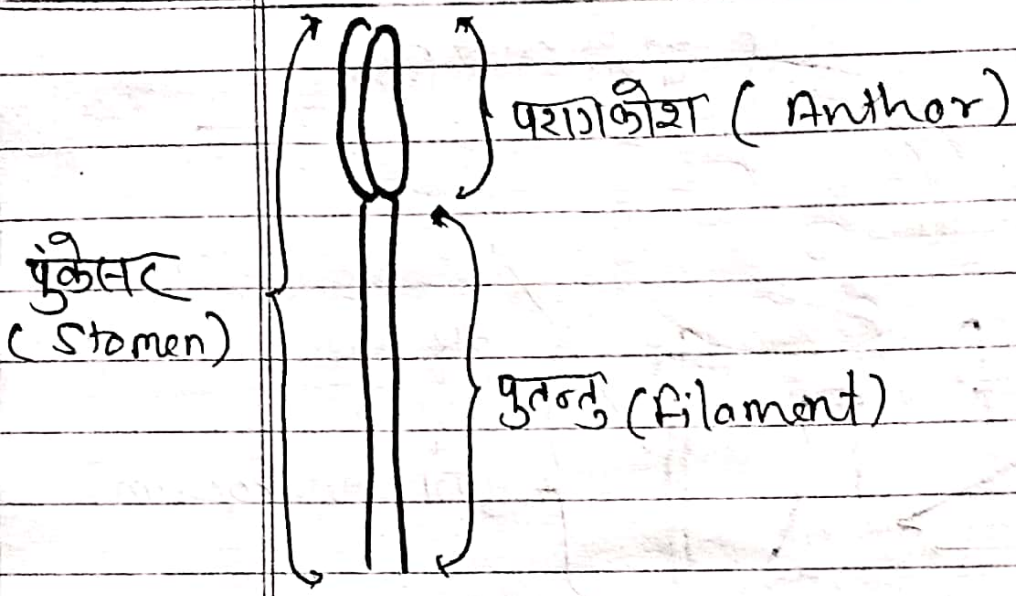 परागकोश ( Anthor)
पुंकेसर
( Stomen)
पुतन्तु (filament)